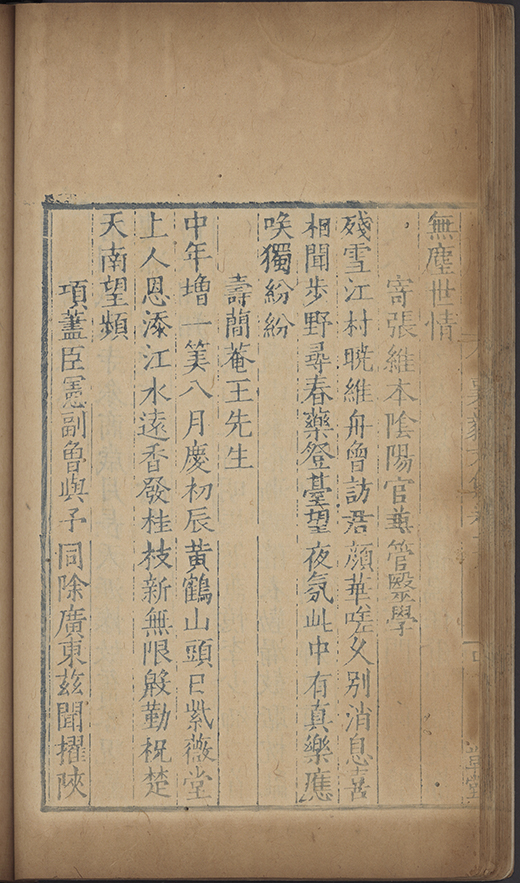 無塵世情
寄張維本陰陽官兼管醫學
殘雪江村曉維舟曾訪君顔華嗟久別消息喜
相聞歩野尋春藥登臺望夜氛此中有真樂應
唉獨紛紛
壽蕳菴王先生
中年增一筭八月慶初辰黃鶴山頭日紫薇堂
上人恩添江水遠香發桂枝新無限殷勤祝楚
天南望頻
項藎臣憲副魯與予同除廣東兹聞擢陜